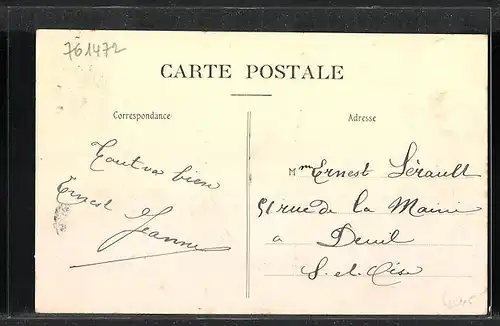 761472
CARTE POSTALE
Correspondance
Adresse
Tout va bien
Ernest Jeanne
Mme Ernest Sérault
51 rue de la Mairie
a Deuil
S.-et-Oise